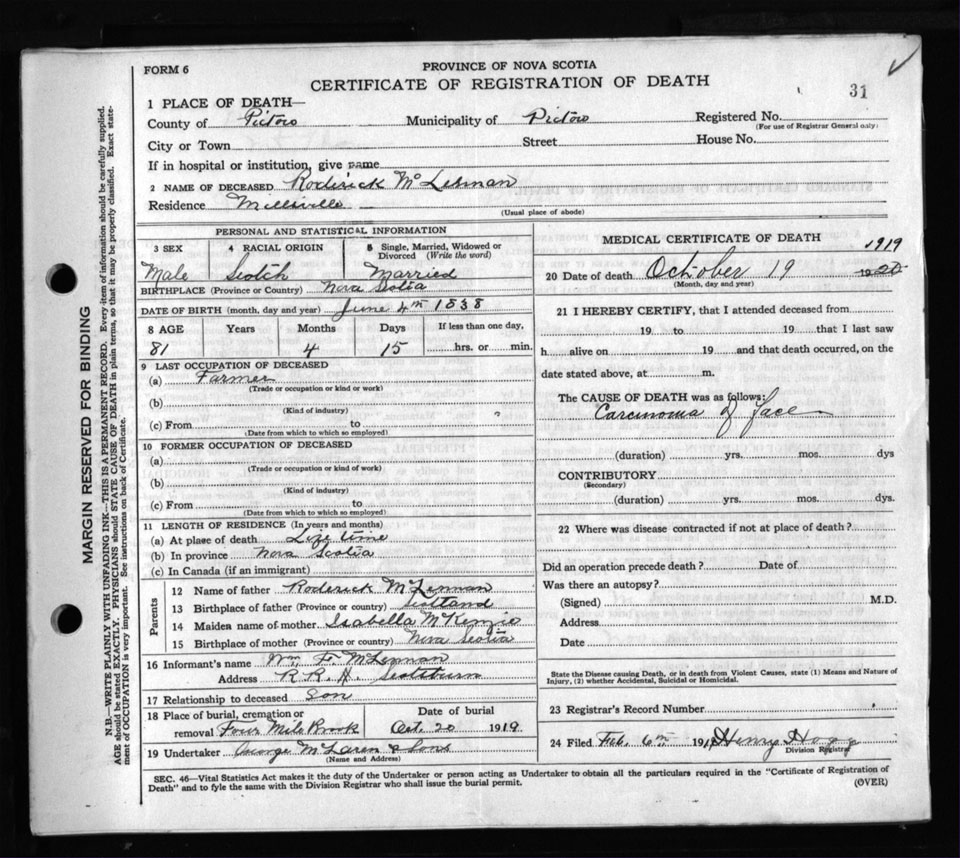 FORM 6
PROVINCE OF NOVA SCOTIA
CERTIFICATE OF REGISTRATION OF DEATH
31
1 PLACE OF DEATH—
County of Pictou Municipality of Pictou Registered No.
(For use of Registrar General only)
City or Town Street House No.
If in hospital or institution, give name
2 NAME OF DECEASED Roderick McLennan
Residence Millsville
(Usual place of abode)
PERSONAL AND STATISTICAL INFORMATION
3 SEX 4 RACIAL ORIGIN 5 Single, Married, Widowed or Divorced (Write the word)
Male Scotch Married
BIRTHPLACE (Province or Country) Nova Scotia
DATE OF BIRTH (month, day and year) June 4th 1838
8 AGE Years Months Days If less than one day,
81 4 15 hrs. or min.
9 LAST OCCUPATION OF DECEASED
(a) Farmer
(Trade or occupation or kind or work)
(b)
(Kind of industry)
(c) From to
(Date from which to which so employed)
10 FORMER OCCUPATION OF DECEASED
(a)
(Trade or occupation or kind of work)
(b)
(Kind of industry)
(c) From to
(Date from which to which so employed)
11 LENGTH OF RESIDENCE (In years and months)
(a) At place of death Life time
(b) In province Nova Scotia
(c) In Canada (if an immigrant)
Parents
12 Name of father Roderick McLennan
13 Birthplace of father (Province or country) Scotland
14 Maiden name of mother Isabella McKenzie
15 Birthplace of mother (Province or country) Nova Scotia
16 Informant's name Wm. F. McLennan
Address R.R. Scotsburn
17 Relationship to deceased Son
18 Place of burial, cremation or removal Date of burial
Four Mile Brook Oct. 20 1919
19 Undertaker George McLaren & Sons
(Name and Address)
MEDICAL CERTIFICATE OF DEATH
1919
20 Date of death October 19 1920
(Month, day and year)
21 I HEREBY CERTIFY, that I attended deceased from
19 to 19 that I last saw
h alive on 19 and that death occurred, on the
date stated above, at m.
The CAUSE OF DEATH was as follows:
Carcinoma of face
(duration) yrs. mos. dys
CONTRIBUTORY
(Secondary)
(duration) yrs. mos. dys.
22 Where was disease contracted if not at place of death?
Did an operation precede death? Date of
Was there an autopsy?
(Signed) M.D.
Address
Date
State the Disease causing Death, or in death from Violent Causes, state (1) Means and Nature of
Injury, (2) whether Accidental, Suicidal or Homicidal.
23 Registrar's Record Number
24 Filed Feb. 6th 19 Henry Hogg
Division Registrar
SEC. 46—Vital Statistics Act makes it the duty of the Undertaker or person acting as Undertaker to obtain all the particulars required in the "Certificate of Registration of
Death" and to fyle the same with the Division Registrar who shall issue the burial permit.
(OVER)
MARGIN RESERVED FOR BINDING
N.B.—WRITE PLAINLY WITH UNFADING INK—THIS IS A PERMANENT RECORD. Every item of information should be carefully supplied.
AGE should be stated EXACTLY. PHYSICIANS should STATE CAUSE OF DEATH in plain terms, so that it may be properly classified. Exact state-
ment of OCCUPATION is very important. See instructions on back of Certificate.